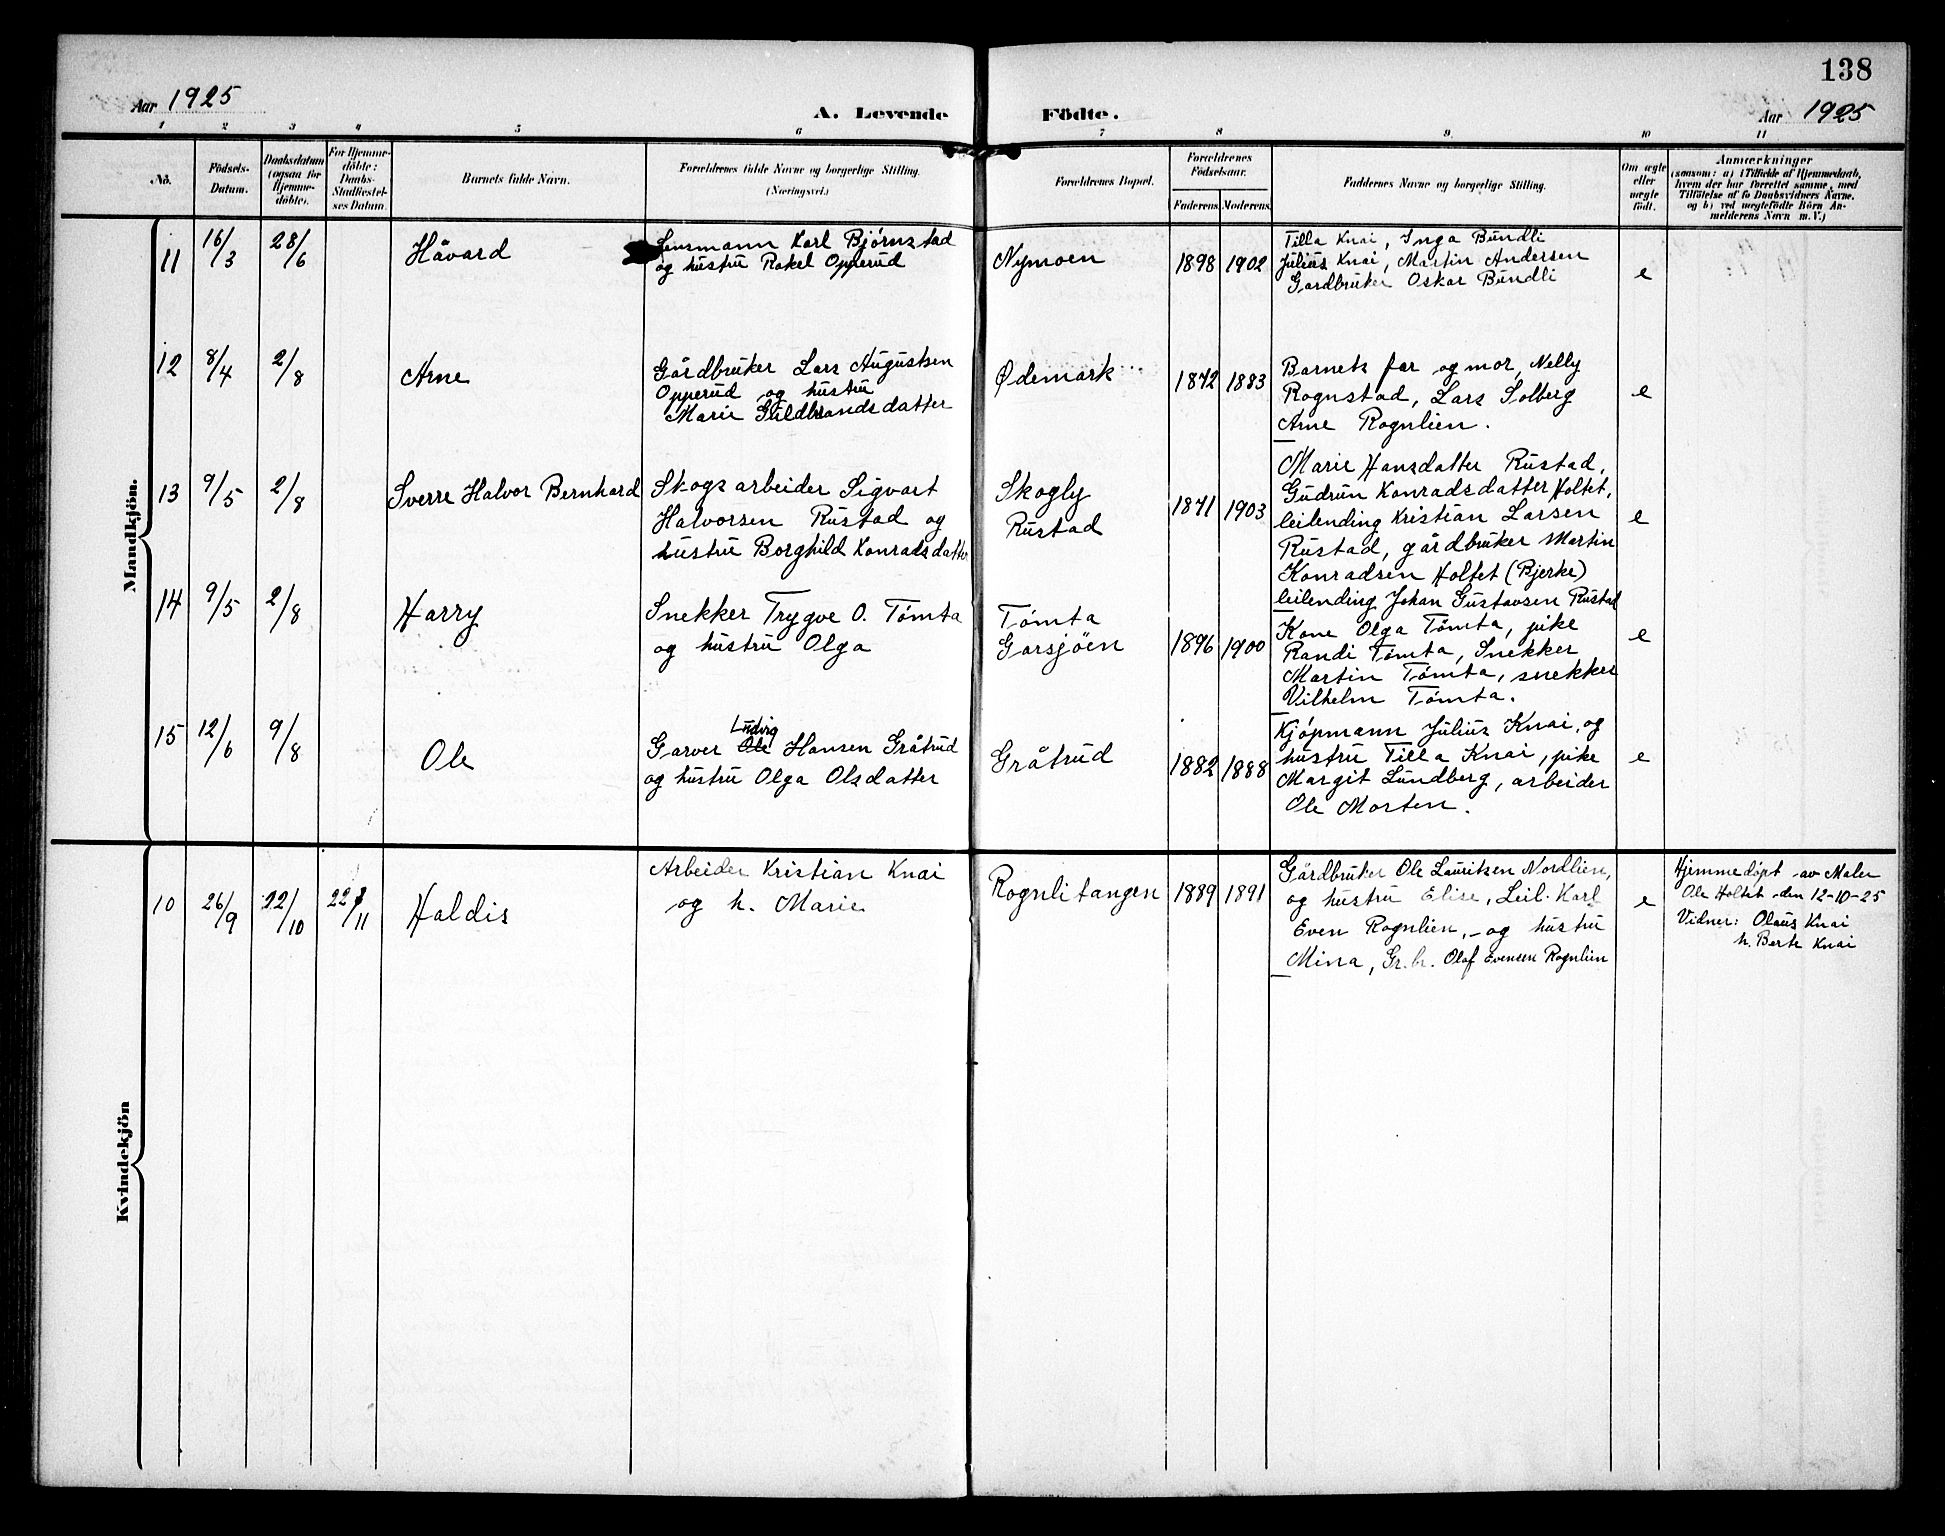 138
Aar 1925
A. Levende Födte.
Aar 1925
1 2 3 4 5 6 7 8 9. 10 11
No.
Födsels-
Datum.
Daabsdatum
(ogsaa for
Hjemme-
döbte).
For Hjemme-
döbte:
Daabs-
Stadfæstel-
ses Datum.
Barnets fulde Navn.
Forældrenes fulde Navne og borgerlige Stilling.
(Næringsvei.)
Forældrenes Bopæl.
Forældrenes
Födselsaar.
Faderens. Moderens.
Faddernes Navne og borgerlige Stilling.
Om ægte
eller
uægte
födt.
Anmærkninger
(saasom: a) i Tilfælde af Hjemmedaab,
hvem der har forrettet samme, med
Tilföielse af to Daabsvidners Navne,
og b) ved uægtefödte Börn An-
melderens Navn m. V.)
Mandkjön.
11 16/3 28/6 Håvard
Lensmann Karl Bjørnstad
og hustru Rakel Opperud
Nymoen
1898 1902
Tilla Knai, Inga Bundli
Julius Knai, Martin Andersen
Gardbruker Oskar Bundli
e
12 8/4 2/8 Arne
Gårdbruker Lars Augustsen
Opperud og hustru
Marie Guldbrandsdatter
Ødemark
1872 1883
Barnets far og mor, Nelly
Rognstad, Lars Solberg
Arne Rognlien.
e
13 9/5 2/8 Sverre Halvor Bernhard
Skogsarbeider Sigvart
Halvorsen Rustad og
hustru Borghild Konradsdatter
Skogly
Rustad
1871 1903
Marie Hansdatter Rustad,
Gudrun Konradsdatter Holtet,
leilending Kristian Larsen
Rustad, gårdbruker Martin
Konradsen Holtet (Bjerke)
leilending Johan Gustavsen Rustad
e
14 9/5 2/8 Harry
Snekker Trygve O. Tömta
og hustru Olga
Tömta
Garsjöen
1896 1900
Kone Olga Tömta, pike
Randi Tömta, Snekker
Martin Tömta, snekker
Vilhelm Tömta.
e
15 12/6 9/8 Ole
Ludvig
Garver Ole Hansen Gråtrud
og hustru Olga Olsdatter
Gråtrud
1882 1888
Kjøpmann Julius Knai, og
hustru Tilla Knai, pike
Margit Lundberg, arbeider
Ole Morten.
e
Kvindekjön
10 26/9 22/10 22/11 Haldis
Arbeider Kristian Knai
og h. Marie
Rognlitangen
1889 1891
Gårdbruker Ole Lauritsen Nordlien,
og hustru Elise, Leil. Karl
Even Rognlien, - og hustru
Mina, Gr.br. Olaf Evensen Rognlien
e
Hjemmedøpt av Maler
Ole Holtet den 12-10-25
Vidner: Olaus Knai
h. Berte Knai